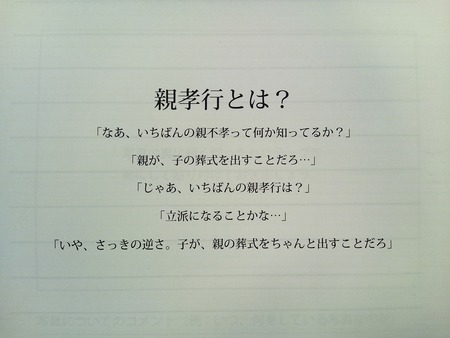 親孝行とは?
「なあ、いちばんの親不孝って何か知ってるか?」
「親が、子の葬式を出すことだろ…」
「じゃあ、いちばんの親孝行は?」
「立派になることかな…」
「いや、さっきの逆さ。子が、親の葬式をちゃんと出すことだろ」